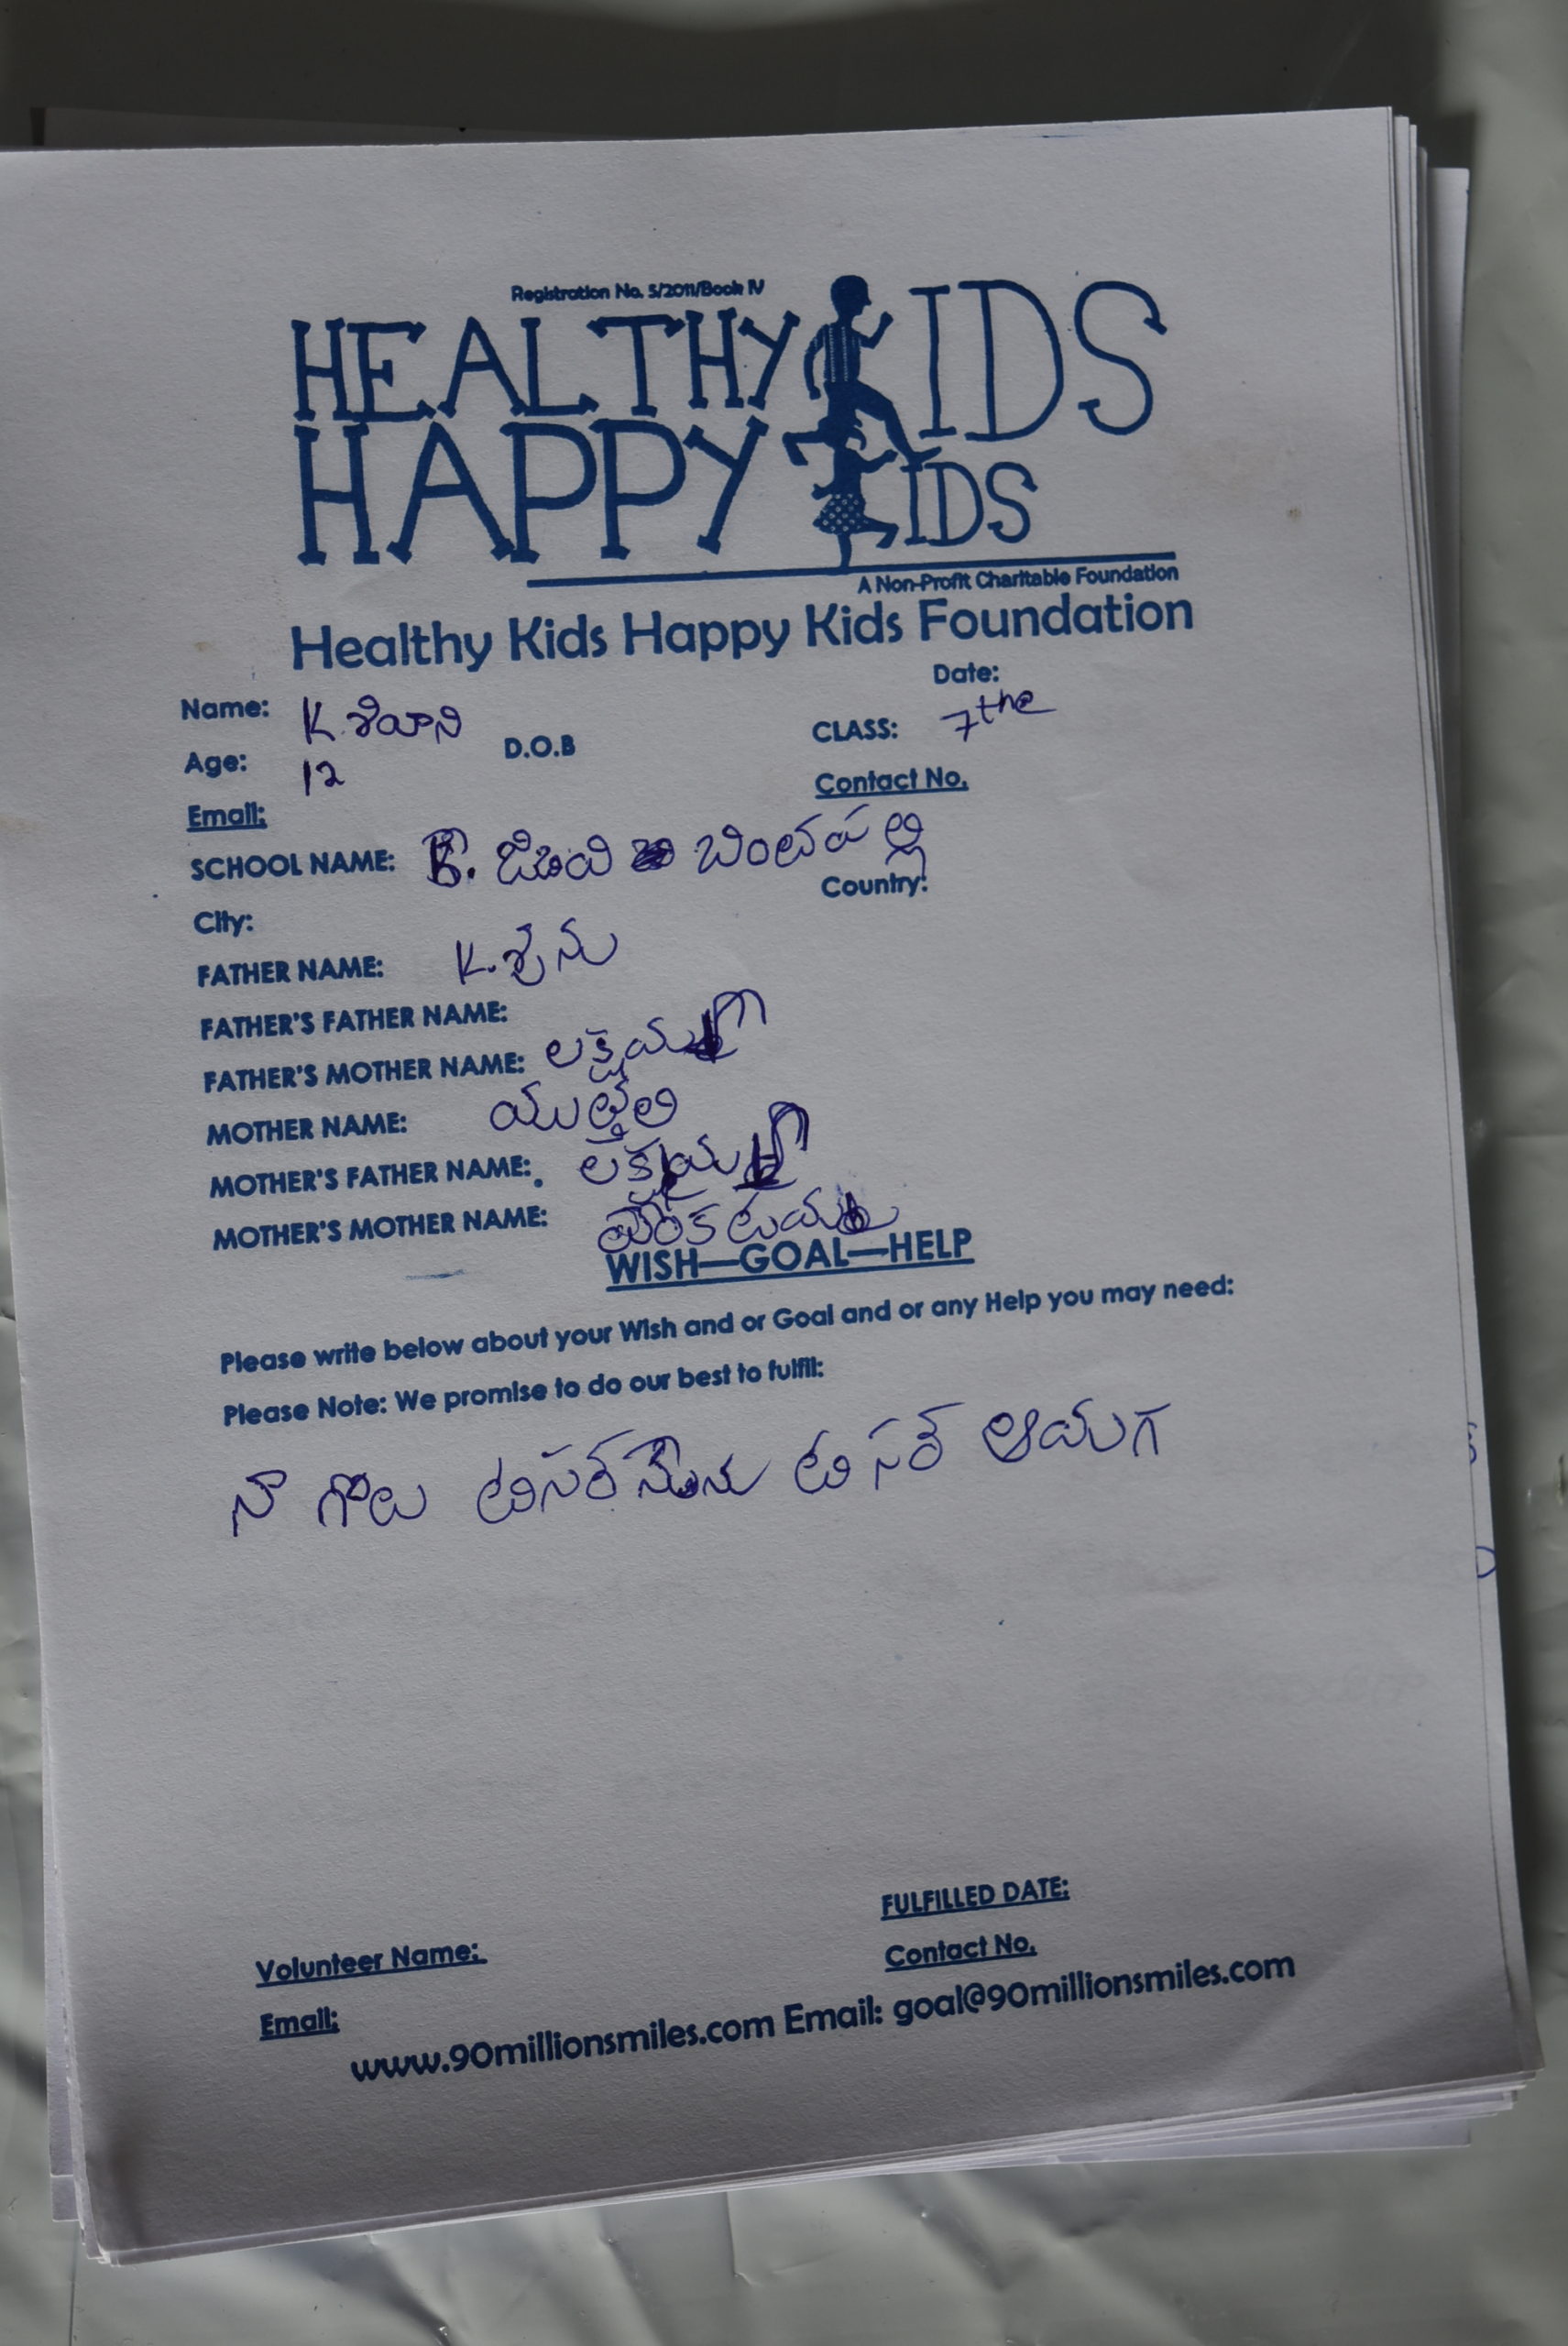 Registration No. 5/2011/Book IV
HEALTHY KIDS
HAPPY KIDS
A Non-Profit Charitable Foundation
Healthy Kids Happy Kids Foundation
Date:
Name: K. శివాని
CLASS: 7the
Age: 12 D.O.B
Contact No.
Email:
SCHOOL NAME:
Country:
City:
FATHER NAME: K. శ్రీను
FATHER'S FATHER NAME:
FATHER'S MOTHER NAME:
MOTHER NAME:
MOTHER'S FATHER NAME:
MOTHER'S MOTHER NAME:
WISH—GOAL—HELP
Please write below about your Wish and or Goal and or any Help you may need:
Please Note: We promise to do our best to fulfil:
నా గోలు టిసర్ నేను టిసర్ ఆయగ
FULFILLED DATE:
Volunteer Name:
Contact No.
Email:
www.90millionsmiles.com Email: goal@90millionsmiles.com